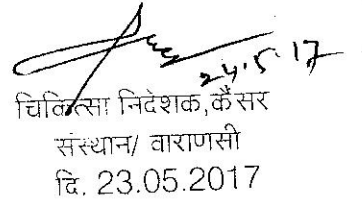 24.5.17
चिकित्सा निदेशक,कैंसर
संस्थान/ वाराणसी
दि. 23.05.2017